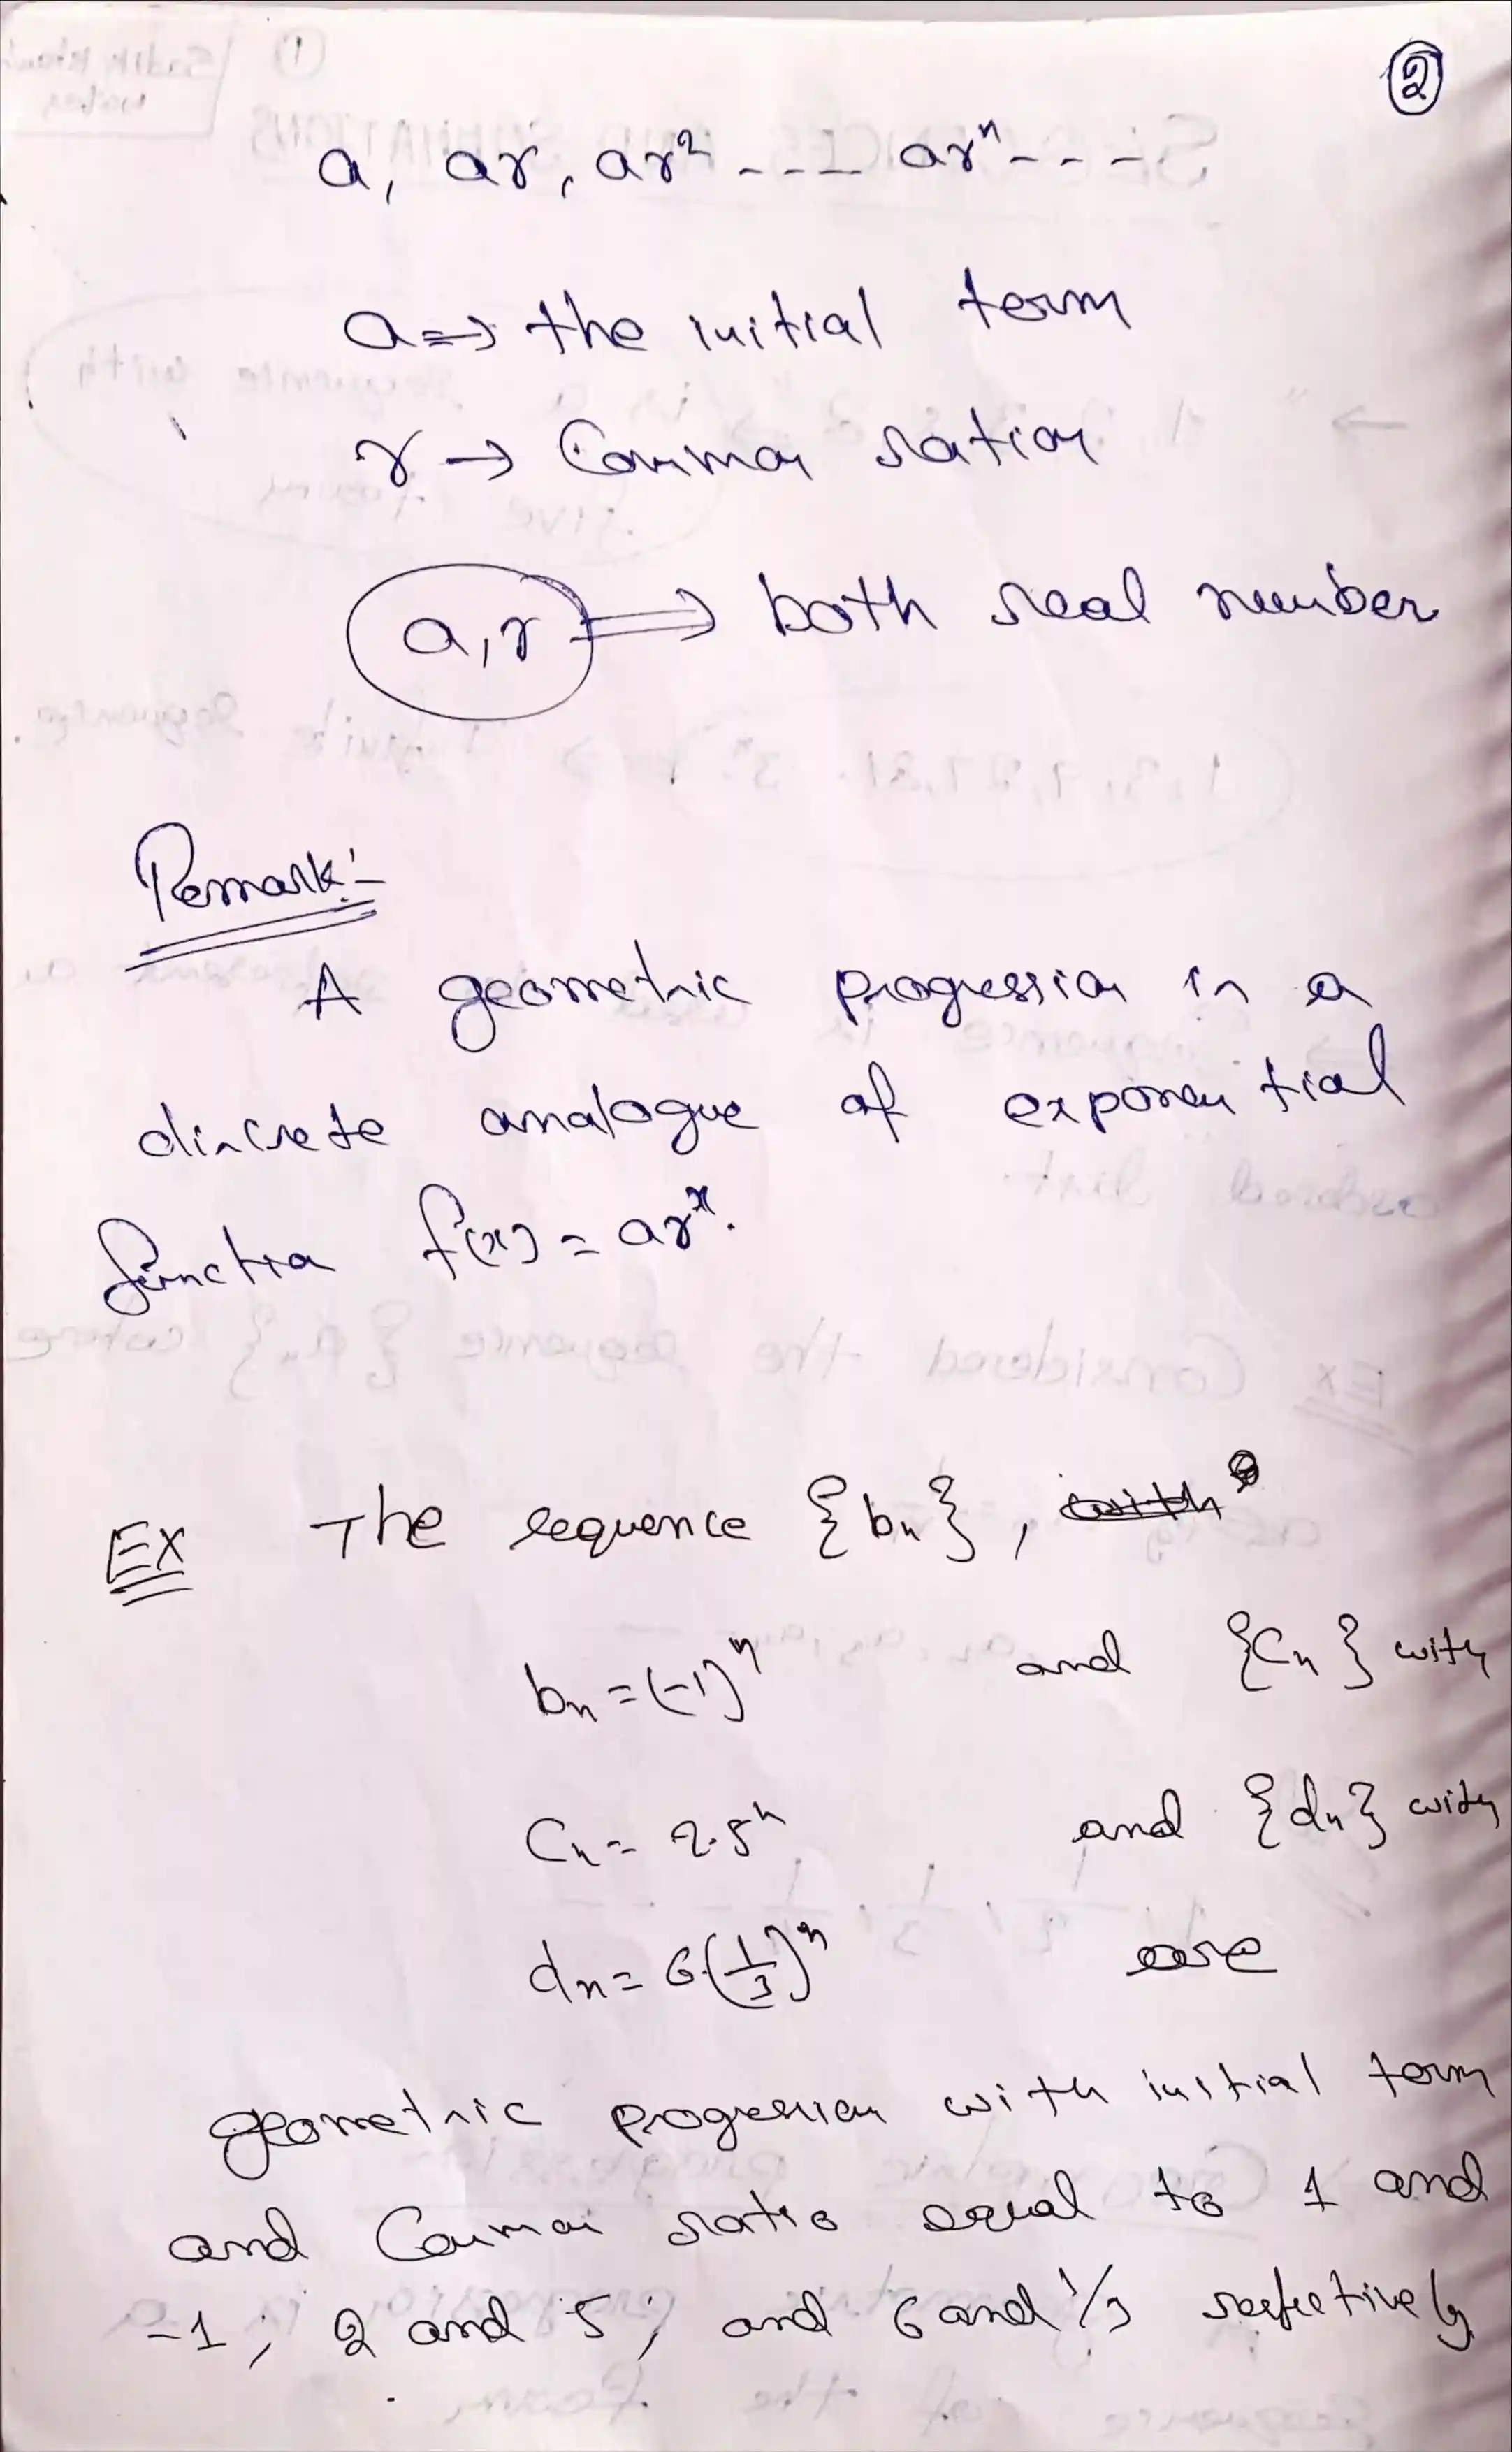 ②
a, ar, ar² - - - - arⁿ - - -
a ⇒ the initial term
r → Common ration
a, r ⇒ both real number
Remark:-
A geometric progression is a
discrete analogue of exponential
function f(x) = arˣ.
EX The sequence {bₙ},
bₙ = (-1)ⁿ and {Cₙ} with
Cₙ = 2.5ⁿ and {dₙ} with
dₙ = 6.(1/3)ⁿ are
geometric progression with initial term
and Common ratio equal to 1 and
-1; 2 and 5; and 6 and 1/3 respectively